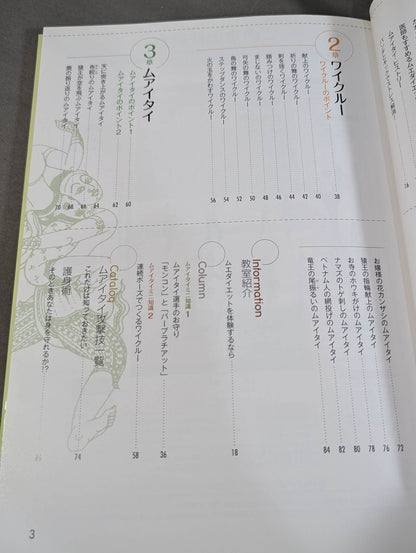 医師もすすめるムエダイエット
ムエダイエット・ヒストリー
2章 ワイクルー
ワイクルーのポイント 38
献上のワイクルー 40
祈りの舞のワイクルー 42
剣を抜くワイクルー 44
踏みつけのワイクルー 46
まじないのワイクルー 48
弓矢の舞のワイクルー 50
鳥の舞のワイクルー 52
ステップダンスのワイクルー 54
火の玉をかわすワイクルー 56
3章 ムアイタイ
ムアイタイのポイント1 60
ムアイタイのポイント2 62
天に突き上がるムアイタイ 64
布絞りのムアイタイ 66
猿王が空を飛ぶムアイタイ 68
鹿の振り返りのムアイタイ 70
お嬢様の花カンザシのムアイタイ 72
猿王の指輪献上のムアイタイ 76
お寺のホウキがけのムアイタイ 78
ナマズのトゲ刺しのムアイタイ 80
ベトナム人の網投げのムアイタイ 82
竜王の尾振るいのムアイタイ 84
Information
教室紹介
ムエダイエットを体験するなら 18
Column
ムアイタイミニ知識1
ムアイタイ選手のお守り
「モンコン」と「パープラチアット」 36
ムアイタイミニ知識2
連続ポーズでつくるワイクルー 58
Catalog
ムアイタイ攻撃技一覧
これだけは知っておきたい 74
護身術
そのときあなたは身を守れるか!?
3